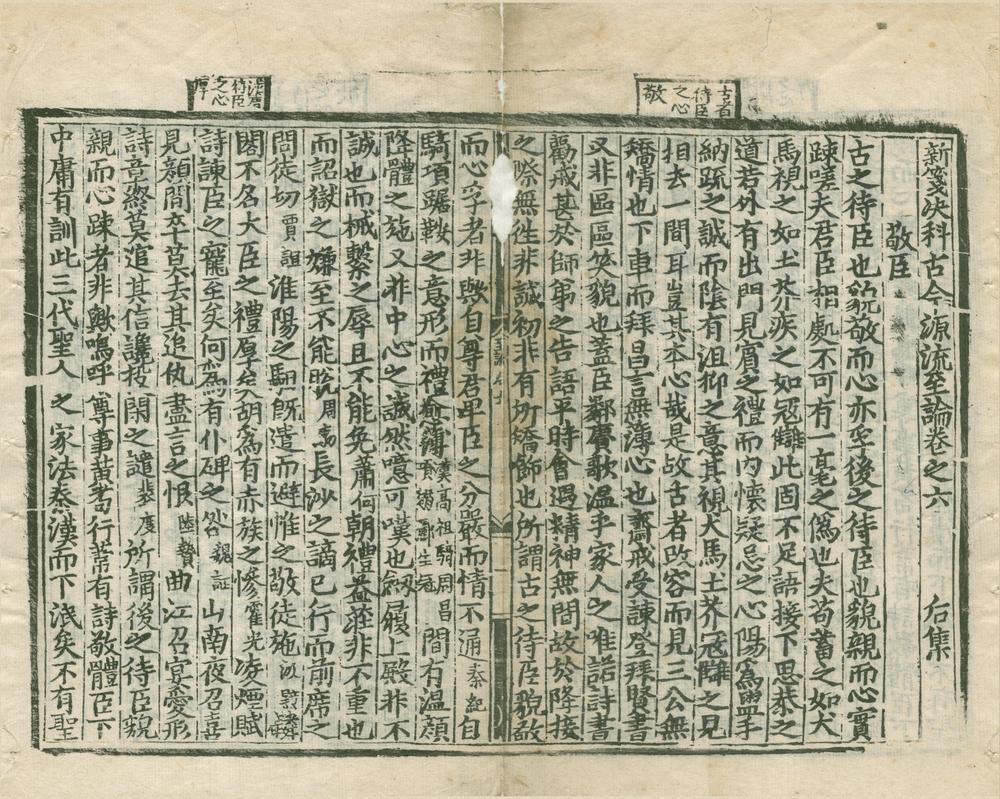 古者
待臣
之心
敬
新箋决科古今源流至論卷之六 后集
敬臣
古之待臣也貌敬而心亦至後之待臣也貌親而心實
踈嗟夫君臣相處不可有一毫之僞也夫苟蓄之如犬
馬視之如土芥疾之如冦讎此固不足語接下思恭之
道若外有出門見賓之禮而内懷疑忌之心陽爲盟手
納䟽之誠而陰有沮抑之意其視犬馬土芥冦讎之見
相去一間耳豈其本心哉是故古者改容而見三公無
矯情也下車而拜昌言無薄心也齋戒受諫登拜賢書
又非區區笑貌也蓋臣鄰賡歌温乎家人之唯諾詩書
勸戒甚於師弟之告語平時會遇精神無間故於降接
之際無徃非誠初非有所矯飾也所謂古之待臣貌敬
而心孚者非歟自尊君卑臣之分嚴而情不通秦紀自
騎項踞鞍之意形而禮愈薄漢高祖騎周昌間有温顔
降體之施又非中心之誠然噫可嘆也劔履上殿非不
誠也而械繫之辱且不能免蕭何朝禮益莊非不重也
而詔獄之嫌至不能脫周勃長沙之謫已行而前席之
問徒切賈誼淮陽之駬旣遣而避帷之敬徒施汲黯麟
閣不名大臣之禮厚矣胡爲有赤族之慘霍光凌煙賦
詩諫臣之寵至矣何爲有仆碑之咎魏証山南夜召喜
見顔間卒莫去其追仇盡言之恨陸贄曲江召宴愛形
詩章終莫追其信讒投閑之譴裴度所謂後之待臣貌
親而心踈者非歟嗚呼尊事黄耉行葦有詩敬體臣下
中庸有訓此三代聖人之家法秦漢而下泯矣不有聖
後
待臣
之心